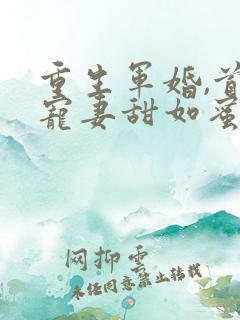 重生军婚,首
宠妻甜如蜜
网抑云
未经同意禁止转载